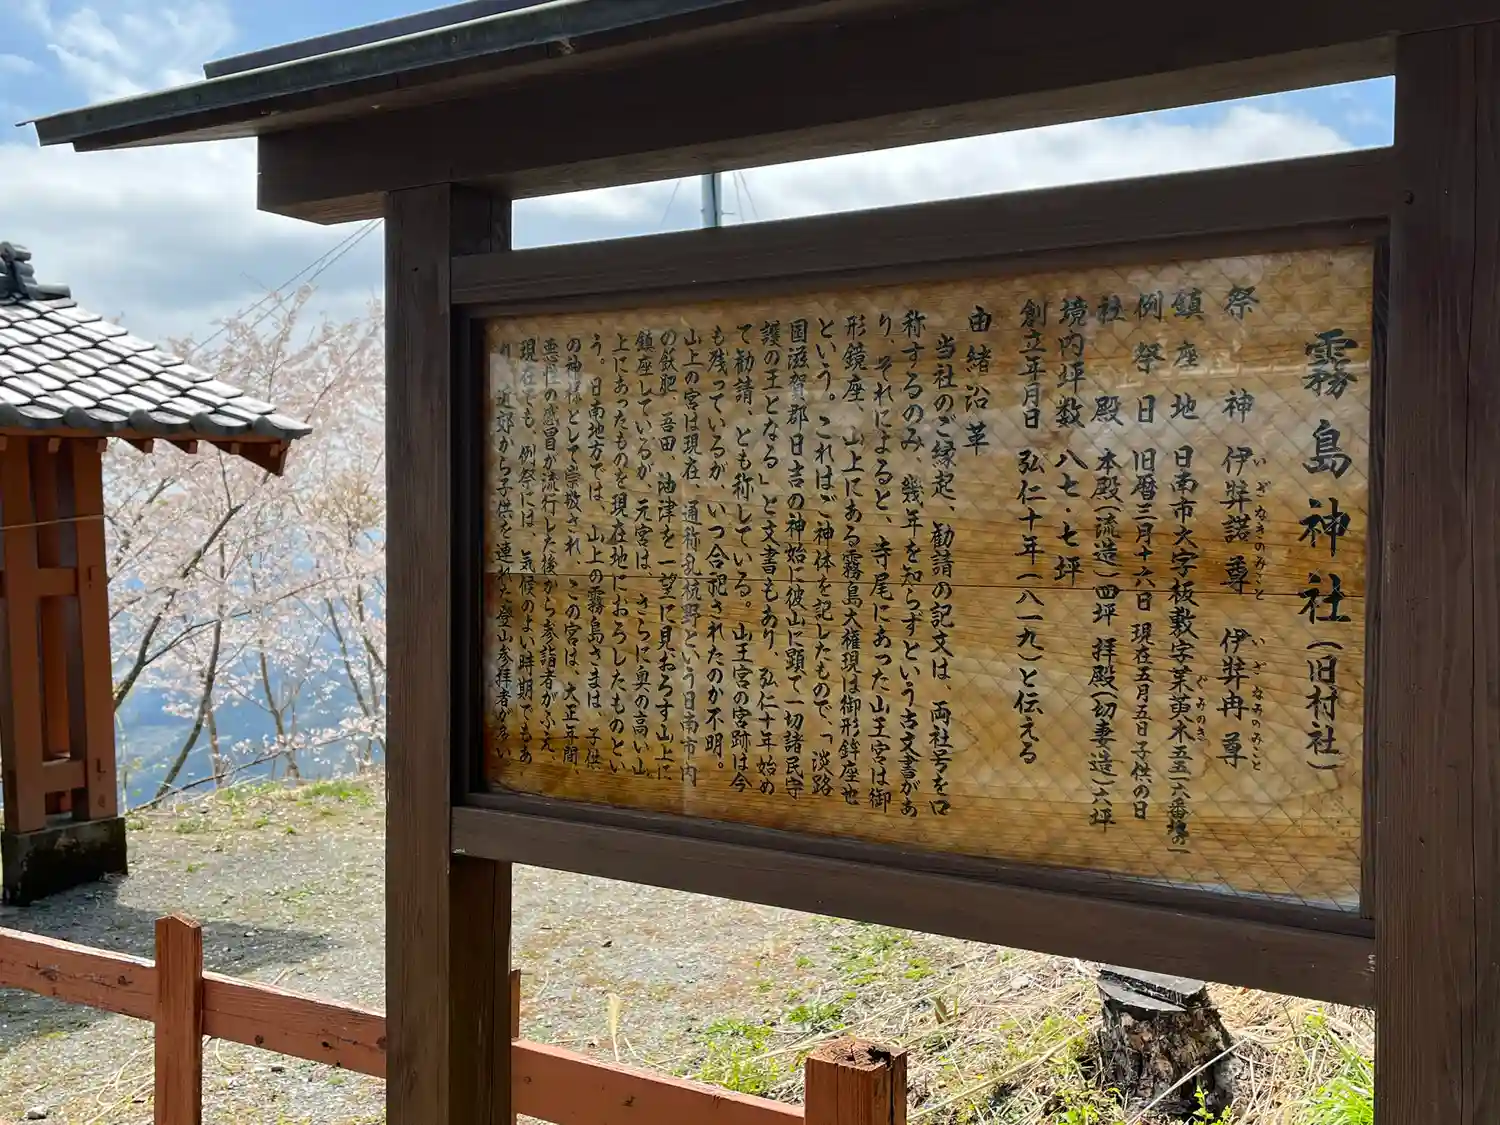 霧島神社(旧村社)
祭神 伊弉諾尊 伊弉冉尊
いざなきのみこと いざなみのみこと
鎮座地 日南市大字板敷字茱萸木五五二六番地の一
ぐみのき
例祭日 旧暦三月十六日 現在五月五日子供の日
社殿 本殿(流造)四坪 拝殿(切妻造)六坪
境内坪数 八七・七坪
創立年月日 弘仁十年(八一九)と伝える
由緒沿革
当社のご縁起、勧請の記文は、両社号を口
称するのみ、幾年を知らずという古文書があ
り、それによると、寺尾にあった山王宮は御
形鏡座、山上にある霧島大権現は御形鉾座也
という。これはご神体を記したもので、「淡路
国滋賀郡日吉の神始に彼山に顕て一切諸民守
護の王となる」と文書もあり、弘仁十年始め
て勧請、とも称している。山王宮の宮跡は今
も残っているが、いつ合祀されたのか不明。
山上の宮は現在、通称乱杭野という日南市内
の飫肥、吾田、油津を一望に見おろす山上に
鎮座しているが、元宮は、さらに奥の高い山
上にあったものを現在地におろしたものとい
う。日南地方では、山上の霧島さまは、子供
の神様として崇敬され、この宮は、大正年間、
悪性の感冒が流行した後から参詣者がふえ、
現在でも、例祭には、気候のよい時期でもあ
り、近郊から子供を連れた登山参拝者が多い